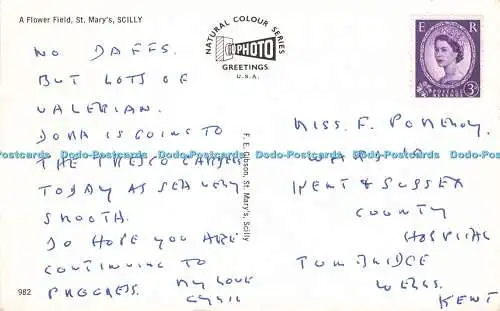 A Flower Field, St. Mary's, SCILLY
NO DAFFS.
BUT LOTS OF
VALERIAN.
IS GOING TO
THE TRESCO GARDEN
TODAY AS SEA VERY
SMOOTH.
DO HOPE YOU ARE
CONTINUING TO
PROGRESS. MY LOVE
CYRIL
982
NATURAL COLOUR SERIES
PHOTO
GREETINGS
U.S.A.
F. E. Gibson, St. Mary's, Scilly
E R
POSTAGE REVENUE
3D
MISS. F. POMEROY.
WARD 10
KENT & SUSSEX
COUNTY
HOSPITAL
TUNBRIDGE
WELLS.
KENT
Postcards Data-Postcards Data-Postcards Data-Postcards Data-Postcards
www.data-postcards.com